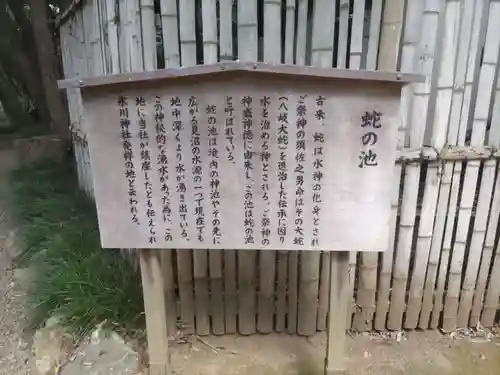 蛇の池
古来、蛇は水神の化身とされ
ご祭神の須佐之男命はその大蛇
(八岐大蛇)を退治した伝承に因り
水を治める神とされる。ご祭神
御神徳に由来し、この池は蛇の池
と呼ばれている。
蛇の池は境内の神池やその先に
広がる見沼の水源の一つで現在でも
地中深くより水が湧き出ている。
この神秘的な湧水があった為に、この
地に当社が鎮座したとも伝えられ
氷川神社発祥の地と云われる。